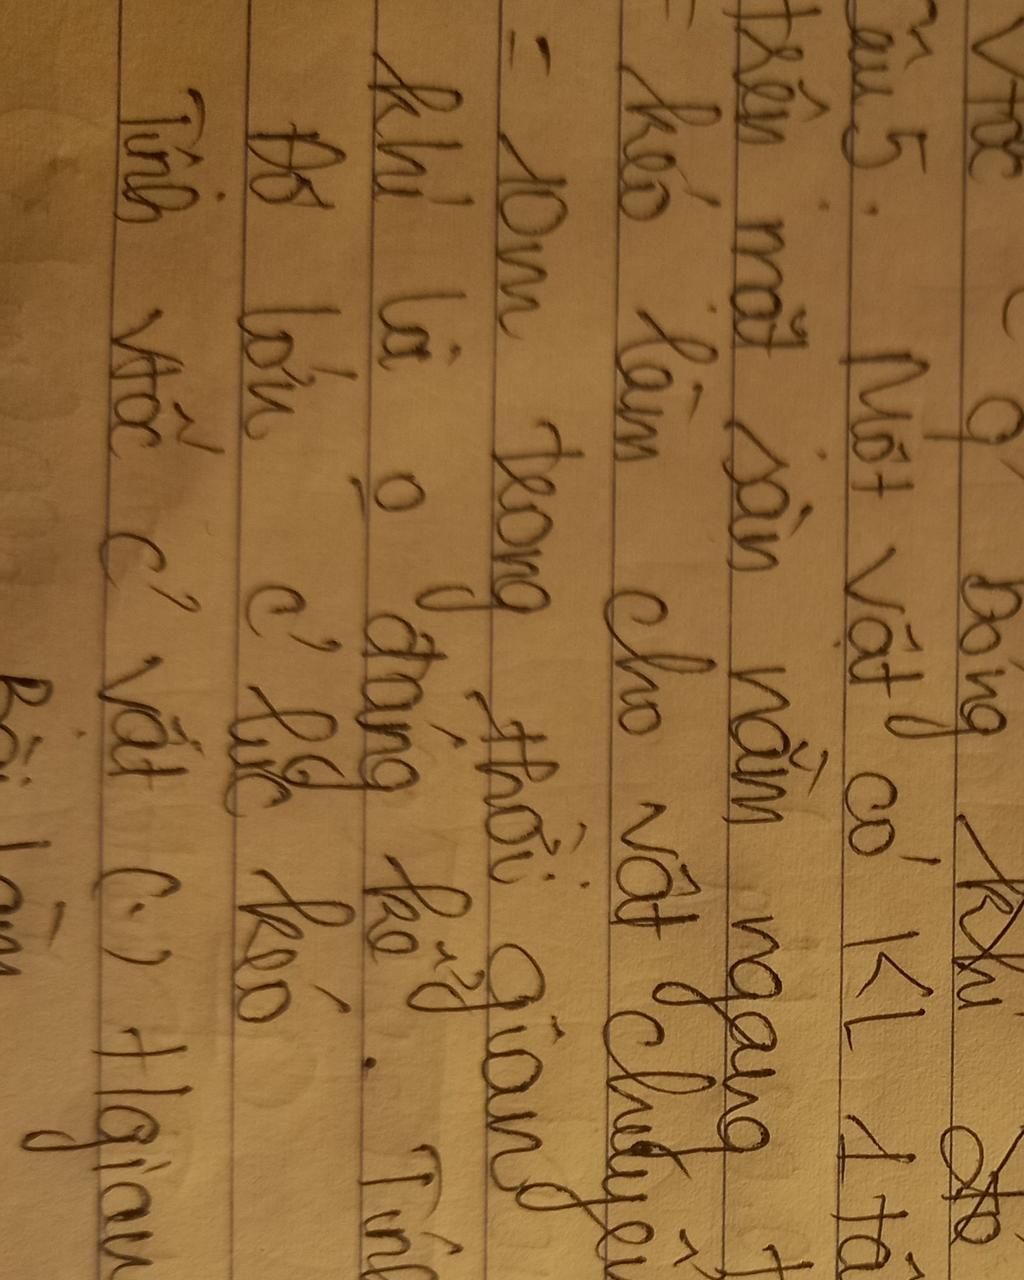 Vtốc bóng khi
Câu 5. Một vật có KL 1 tấ
trên mặt sàn nằm ngang t
= kéo làm cho vật chuyển
= 10m trong thời gian
khí là o đáng kể. Tính
độ lớn c' lực kéo
Tính vtốc c' vật (.) tgian
Bài làm